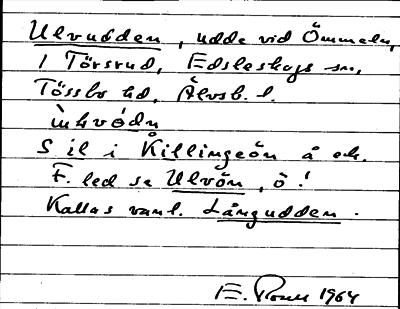 Ulvudden, udde vid Ömmeln,
i Törsrud, Edsleskogs sn,
Tössbo hd, Älvsb. l.
S il i Killingeön å ek.
F. led se Ulvön, ö!
Kallas vanl. Långudden.
E. 1964